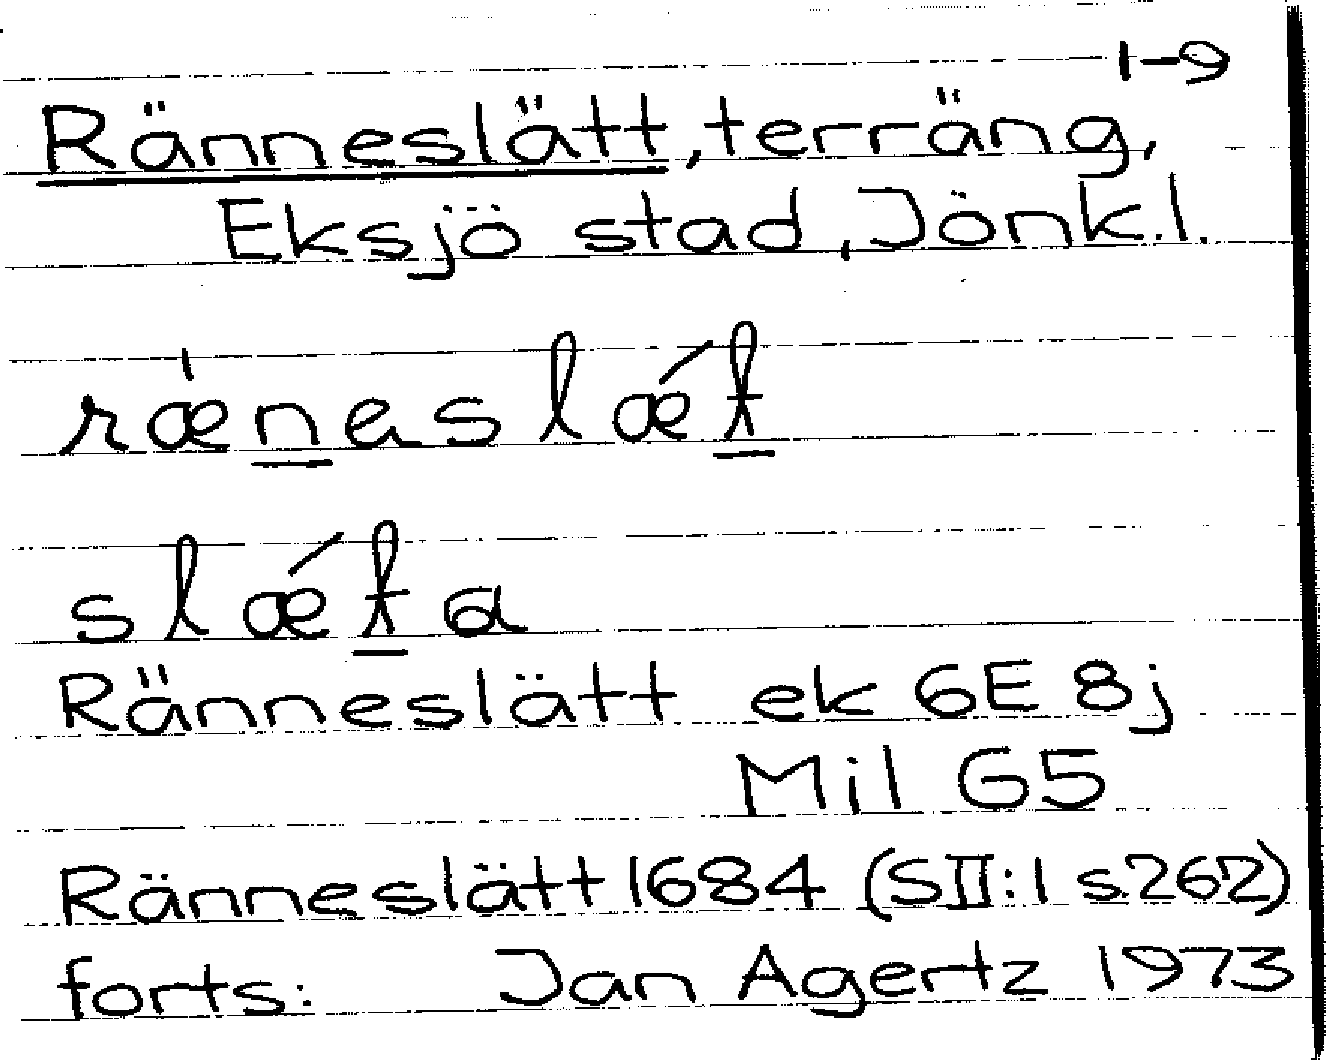 1-9
Ränneslätt, terräng,
Eksjö stad, Jönk.l.
ræ̀nəslǽt
slǽta
Ränneslätt ek 6E 8j
Mil G5
Ränneslätt 1684 (SII:1 s.262)
forts: Jan Agertz 1973